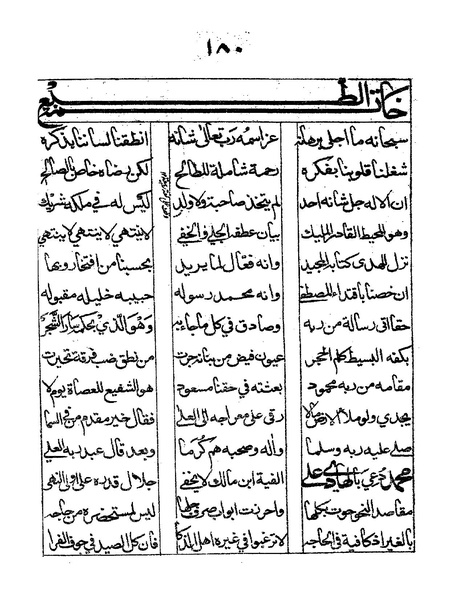 ١٨٠
خاتمة الطبع
سبحانه ما اجلى برهانه عز اسمه رب تعالى شانه انطقنا لساننا بذكره
شغلنا قلوبنا بفكره رحمة شاملة للطالح لكن رضاه خاص بالصالح
ان الاله جل شانه احد لم يتخذ صاحبة ولا ولد ليس له في ملكه شريك
وهو المحيط القاهر المليك بيان عطفه الجلي والخفي لا ينتهي لا ينتهي لا ينتهي
نزل الهدى كتابه المجيد وانه فعال لما يريد بحسبنا من افتخار وبها
ان خصنا باقتداء المصطفى وانه محمد رسوله حبيبه خليله مقبوله
حقا اتى رسالة من ربه وصادق في كل ما جاء به وهو الذي بحكمه سار الشجر
بكفه البسيط كلم الحجر عيون فيض من بنانه جرت من نطق ضب فرقة تحيرت
مقامه من ربه محمود بعثته في حقنا مسعود هو الشفيع للعصاة يوم لا
يجدي ولو ملأ الارض رقى على معراجه الى العلى فقال خير مقدم من في السما
صلى عليه ربه وسلما واله وصحبه هم كرما وبعد قال عبد ربه العلي
محمد دعي بالهادي علي الفية ابن مالك لا يخفى جلال قدره على اولي النهى
مقاصد النحو حوت بكلها واحرزت ابواب صرف ليس لمستحضره من حاجه
بالغير اذ كافية في الحاجه لا ترغبوا في غيره اهل الذكا فان كل الصيد في جوف الفرا